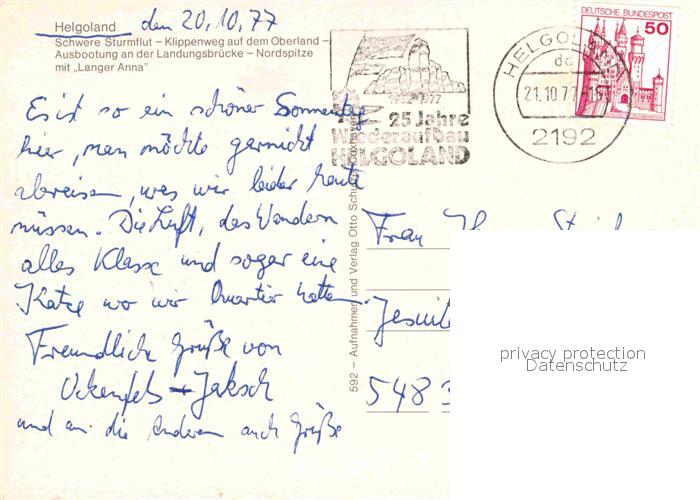 Helgoland den 20.10.77
Schwere Sturmflut – Klippenweg auf dem Oberland –
Ausbootung an der Landungsbrücke – Nordspitze
mit „Langer Anna"
Es ist so ein schöner Sonnentag
hier, man möchte garnicht
abreisen, was wir leider heute
müssen. Die Luft, das Wandern
alles Klasse und sogar eine
Katze wo wir Quartier hatten.
Freundliche Grüße von
Uckenfels + Jaksch
und an die Anderen auch Grüße
1952-1977
25 Jahre
Wiederaufbau
HELGOLAND
HELGOLAND
dd
21.10.77-15
2192
DEUTSCHE BUNDESPOST
50
592 – Aufnahmen und Verlag Otto Schu Cuxhaven
Frau
Jesuit
548
privacy protection
Datenschutz